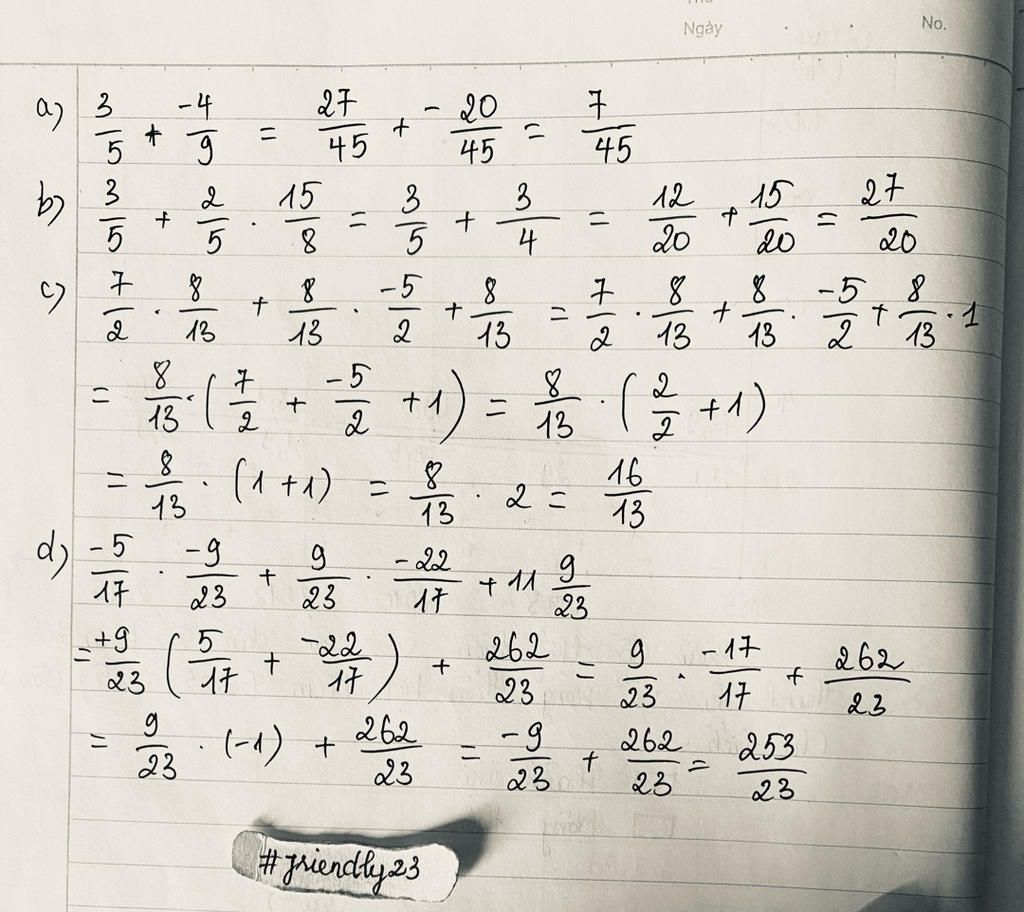 Ngày No.
a) 3/5 + -4/9 = 27/45 + -20/45 = 7/45
b) 3/5 + 2/5 . 15/8 = 3/5 + 3/4 = 12/20 + 15/20 = 27/20
c) 7/2 . 8/13 + 8/13 . -5/2 + 8/13 = 7/2 . 8/13 + 8/13 . -5/2 + 8/13 . 1
= 8/13 . (7/2 + -5/2 + 1) = 8/13 . (2/2 + 1)
= 8/13 . (1 + 1) = 8/13 . 2 = 16/13
d) -5/17 . -9/23 + 9/23 . -22/17 + 11 9/23
= +9/23 (5/17 + -22/17) + 262/23 = 9/23 . -17/17 + 262/23
= 9/23 . (-1) + 262/23 = -9/23 + 262/23 = 253/23
#friendly23